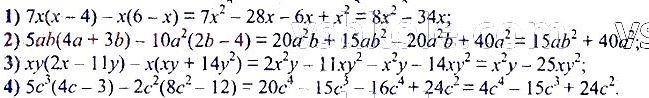 1) 7x(x − 4) − x(6 − x) = 7x² − 28x − 6x + x² = 8x² − 34x;
2) 5ab(4a + 3b) − 10a²(2b − 4) = 20a²b + 15ab² − 20a²b + 40a² = 15ab² + 40a²;
3) xy(2x − 11y) − x(xy + 14y²) = 2x²y − 11xy² − x²y − 14xy² = x²y − 25xy²;
4) 5c³(4c − 3) − 2c²(8c² − 12) = 20c⁴ − 15c³ − 16c⁴ + 24c² = 4c⁴ − 15c³ + 24c².